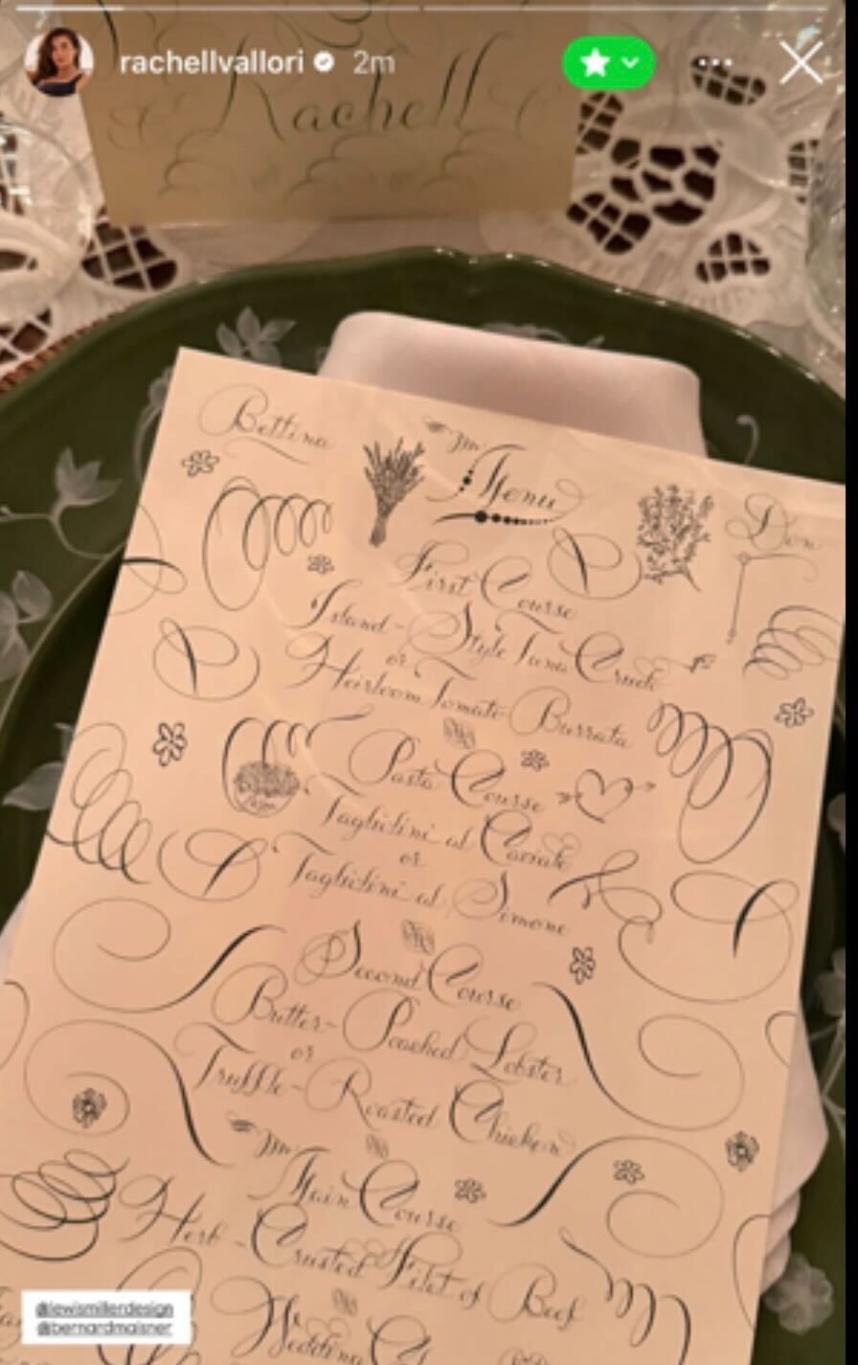 rachellvallori 2m
Rachell
Bettina
Menu
Don
First Course
Island-Style Tuna Crudo
or
Heirloom Tomato Burrata
Pasta Course
Tagliolini al Caviale
or
Tagliolini al Simone
Second Course
Butter-Poached Lobster
or
Truffle-Roasted Chicken
Main Course
Herb-Crusted Filet of Beef
Wedding
@lewismillerdesign
@bernardmaisner